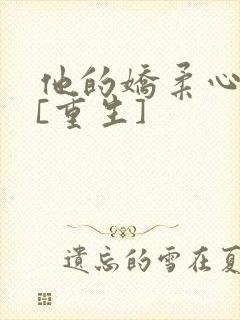 他的嬌柔心
[重生]
遺忘的雪在夏